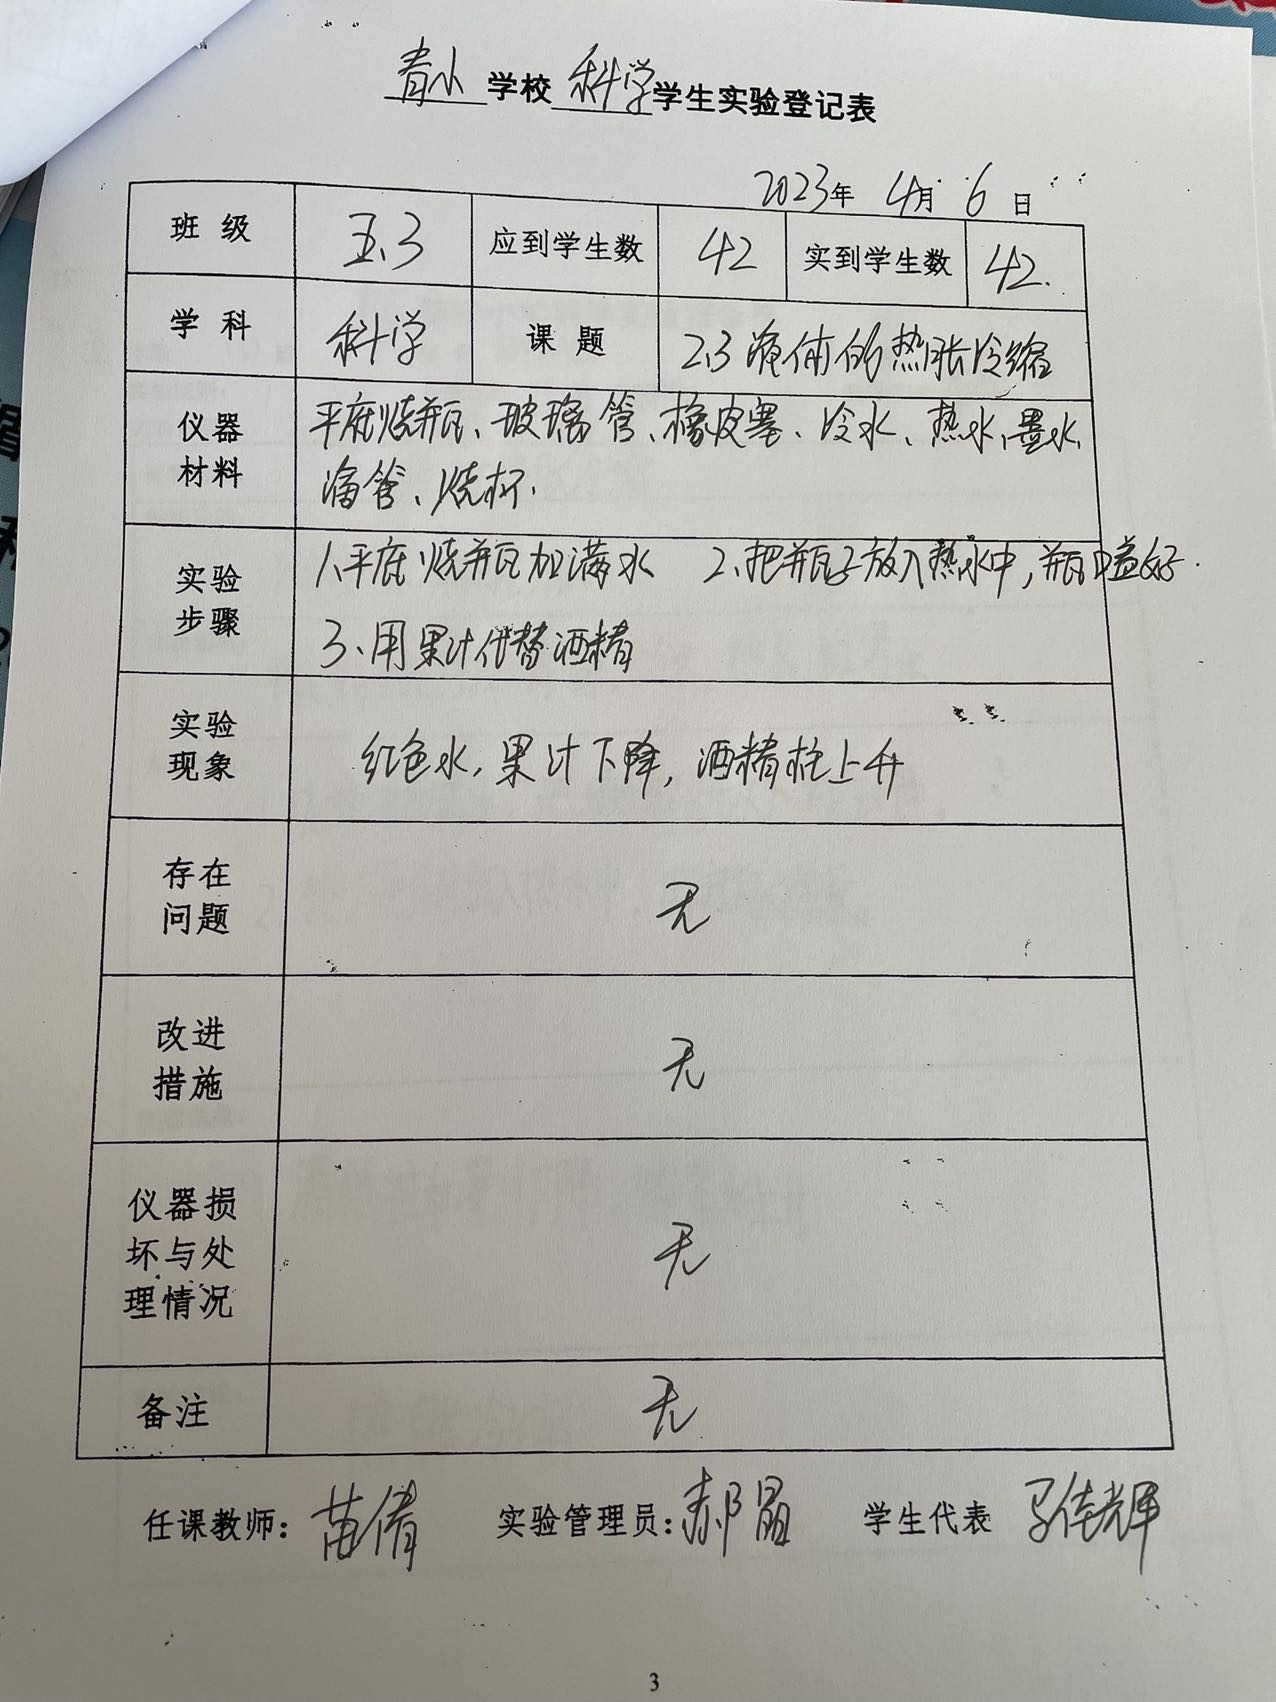 青小学校科学学生实验登记表
2023年 4月 6日
班级 五.3 应到学生数 42 实到学生数 42.
学科 科学 课题 2.3液体的热胀冷缩
仪器材料
平底烧瓶、玻璃管、橡皮塞、冷水、热水、墨水
滴管、烧杯.
实验步骤
1.平底烧瓶加满水 2.把瓶子放入热水中,瓶口盖好.
3.用果汁代替酒精
实验现象
红色水,果汁下降,酒精柱上升
存在问题
无
改进措施
无
仪器损坏与处理情况
无
备注 无
任课教师: 苗倩 实验管理员: 郝晶 学生代表 马佳辉
3